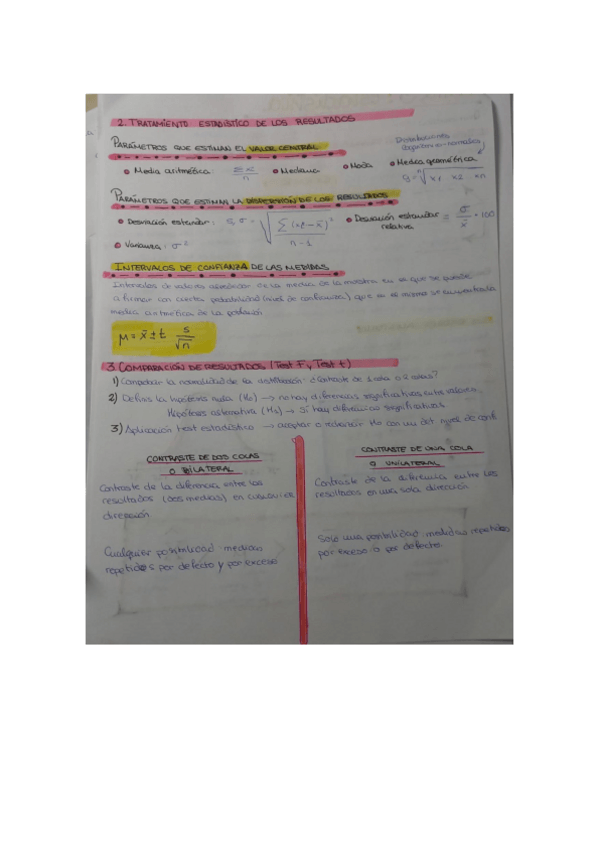 2. TRATAMIENTO ESTADÍSTICO DE LOS RESULTADOS
PARÁMETROS QUE ESTIMAN EL VALOR CENTRAL
Distribuciones
logarítmico-normales
• Media aritmética: Σx / n • Mediana • Moda • Media geométrica
g = ⁿ√x1 x2 xn
PARÁMETROS QUE ESTIMAN LA DISPERSIÓN DE LOS RESULTADOS
• Desviación estándar: s, σ = √ Σ(xi - x̄)² / n-1 • Desviación estándar relativa = σ / x̄ · 100
• Varianza: σ²
INTERVALOS DE CONFIANZA DE LAS MEDIDAS
Intervalos de valores alrededor de la media de la muestra en la que se puede
afirmar con cierta probabilidad (nivel de confianza) que en el mismo se encuentra la
media aritmética de la población
μ = x̄ ± t s / √n
3. COMPARACIÓN DE RESULTADOS (Test F y Test t)
1) Comprobar la normalidad de la distribución: ¿contraste de 1 cola o 2 colas?
2) Definir la hipótesis nula (H0) → no hay diferencias significativas entre valores
Hipótesis alternativa (H1) → Sí hay diferencias significativas
3) Aplicación test estadístico → aceptar o rechazar H0 con un det nivel de conf.
CONTRASTE DE DOS COLAS
O BILATERAL
Contraste de la diferencia entre los
resultados (dos medias) en cualquier
dirección
Cualquier posibilidad medidas
repetidas por defecto y por exceso
CONTRASTE DE UNA COLA
O UNILATERAL
Contraste de la diferencia entre los
resultados en una sola dirección
Solo una posibilidad, medidas repetidas
por exceso o por defecto.